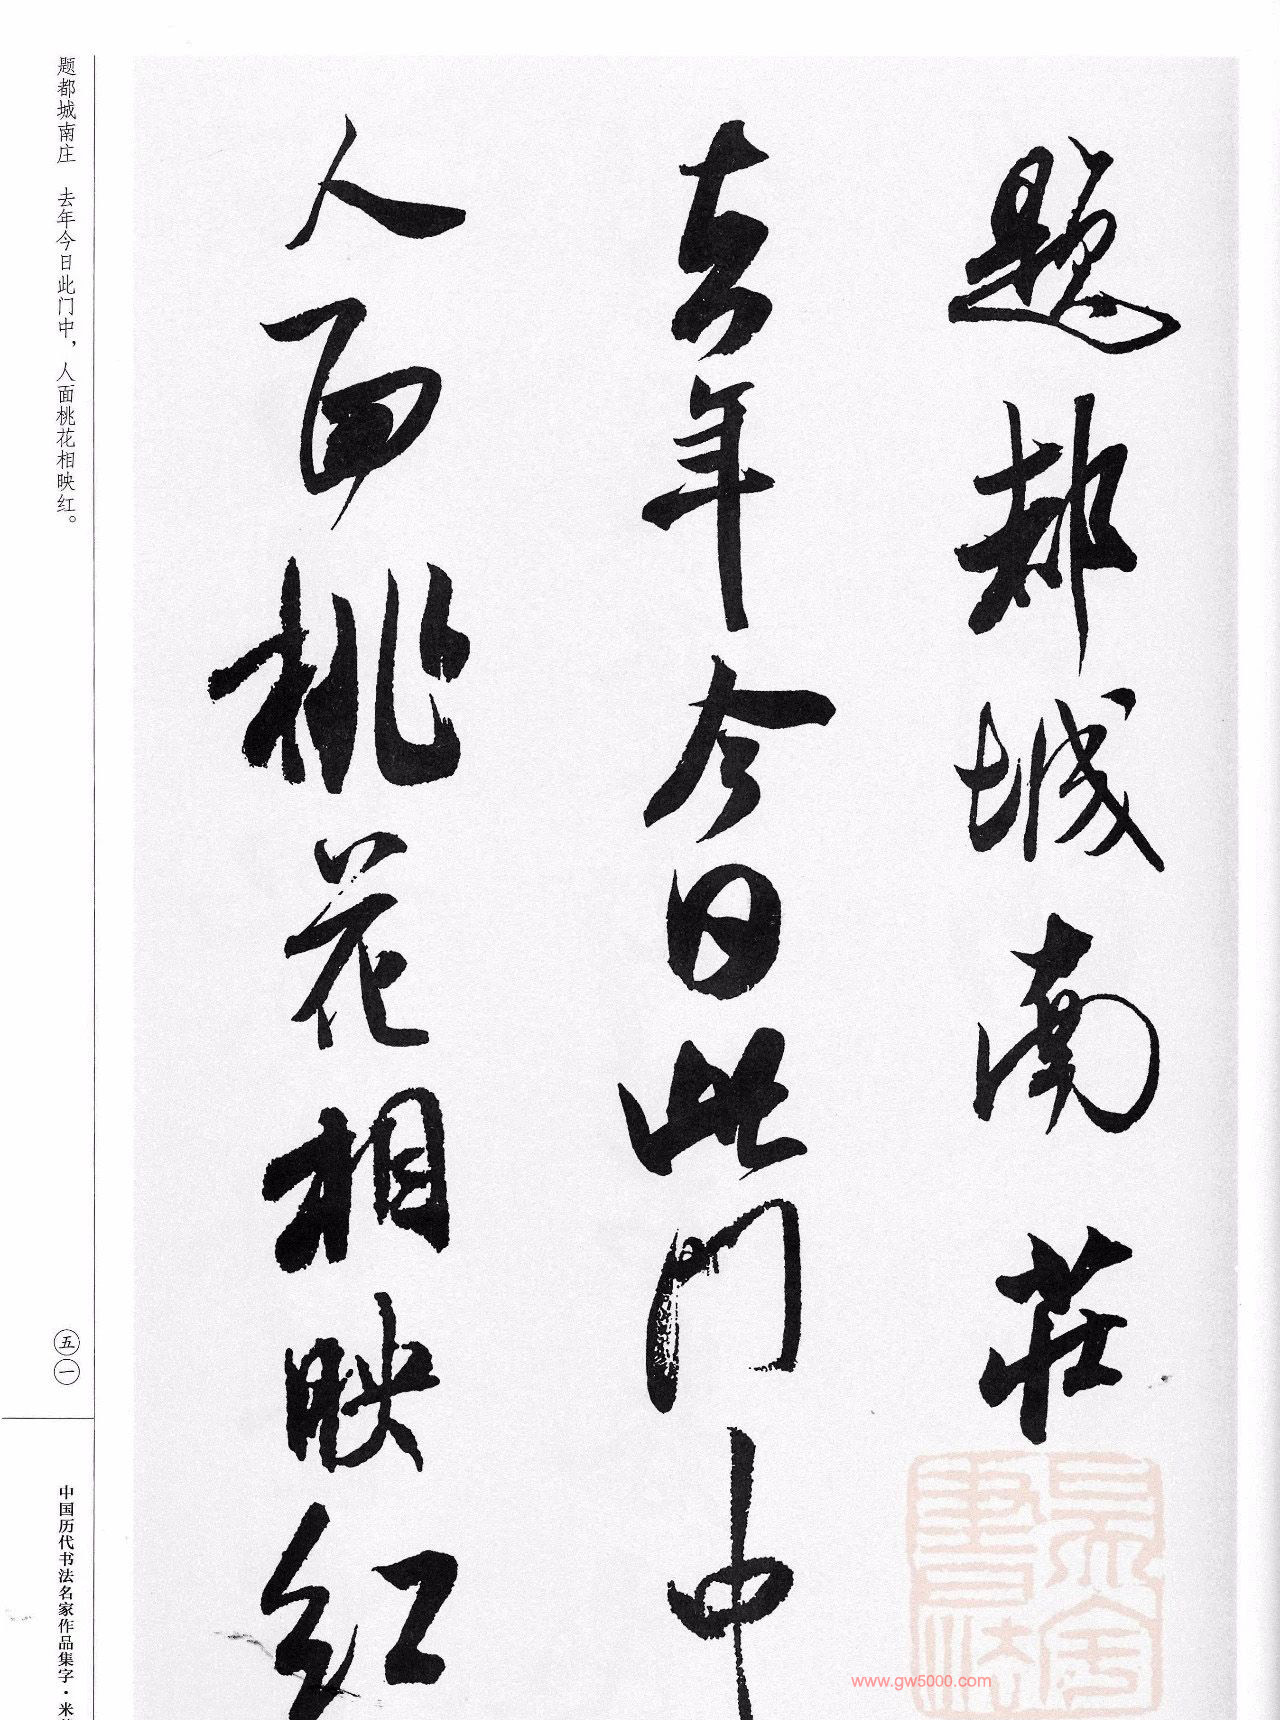 题都城南莊
去年今日此门中
人面桃花相映红
题都城南庄　去年今日此门中，人面桃花相映红。
五一
中国历代书法名家作品集字·米
www.gw5000.com